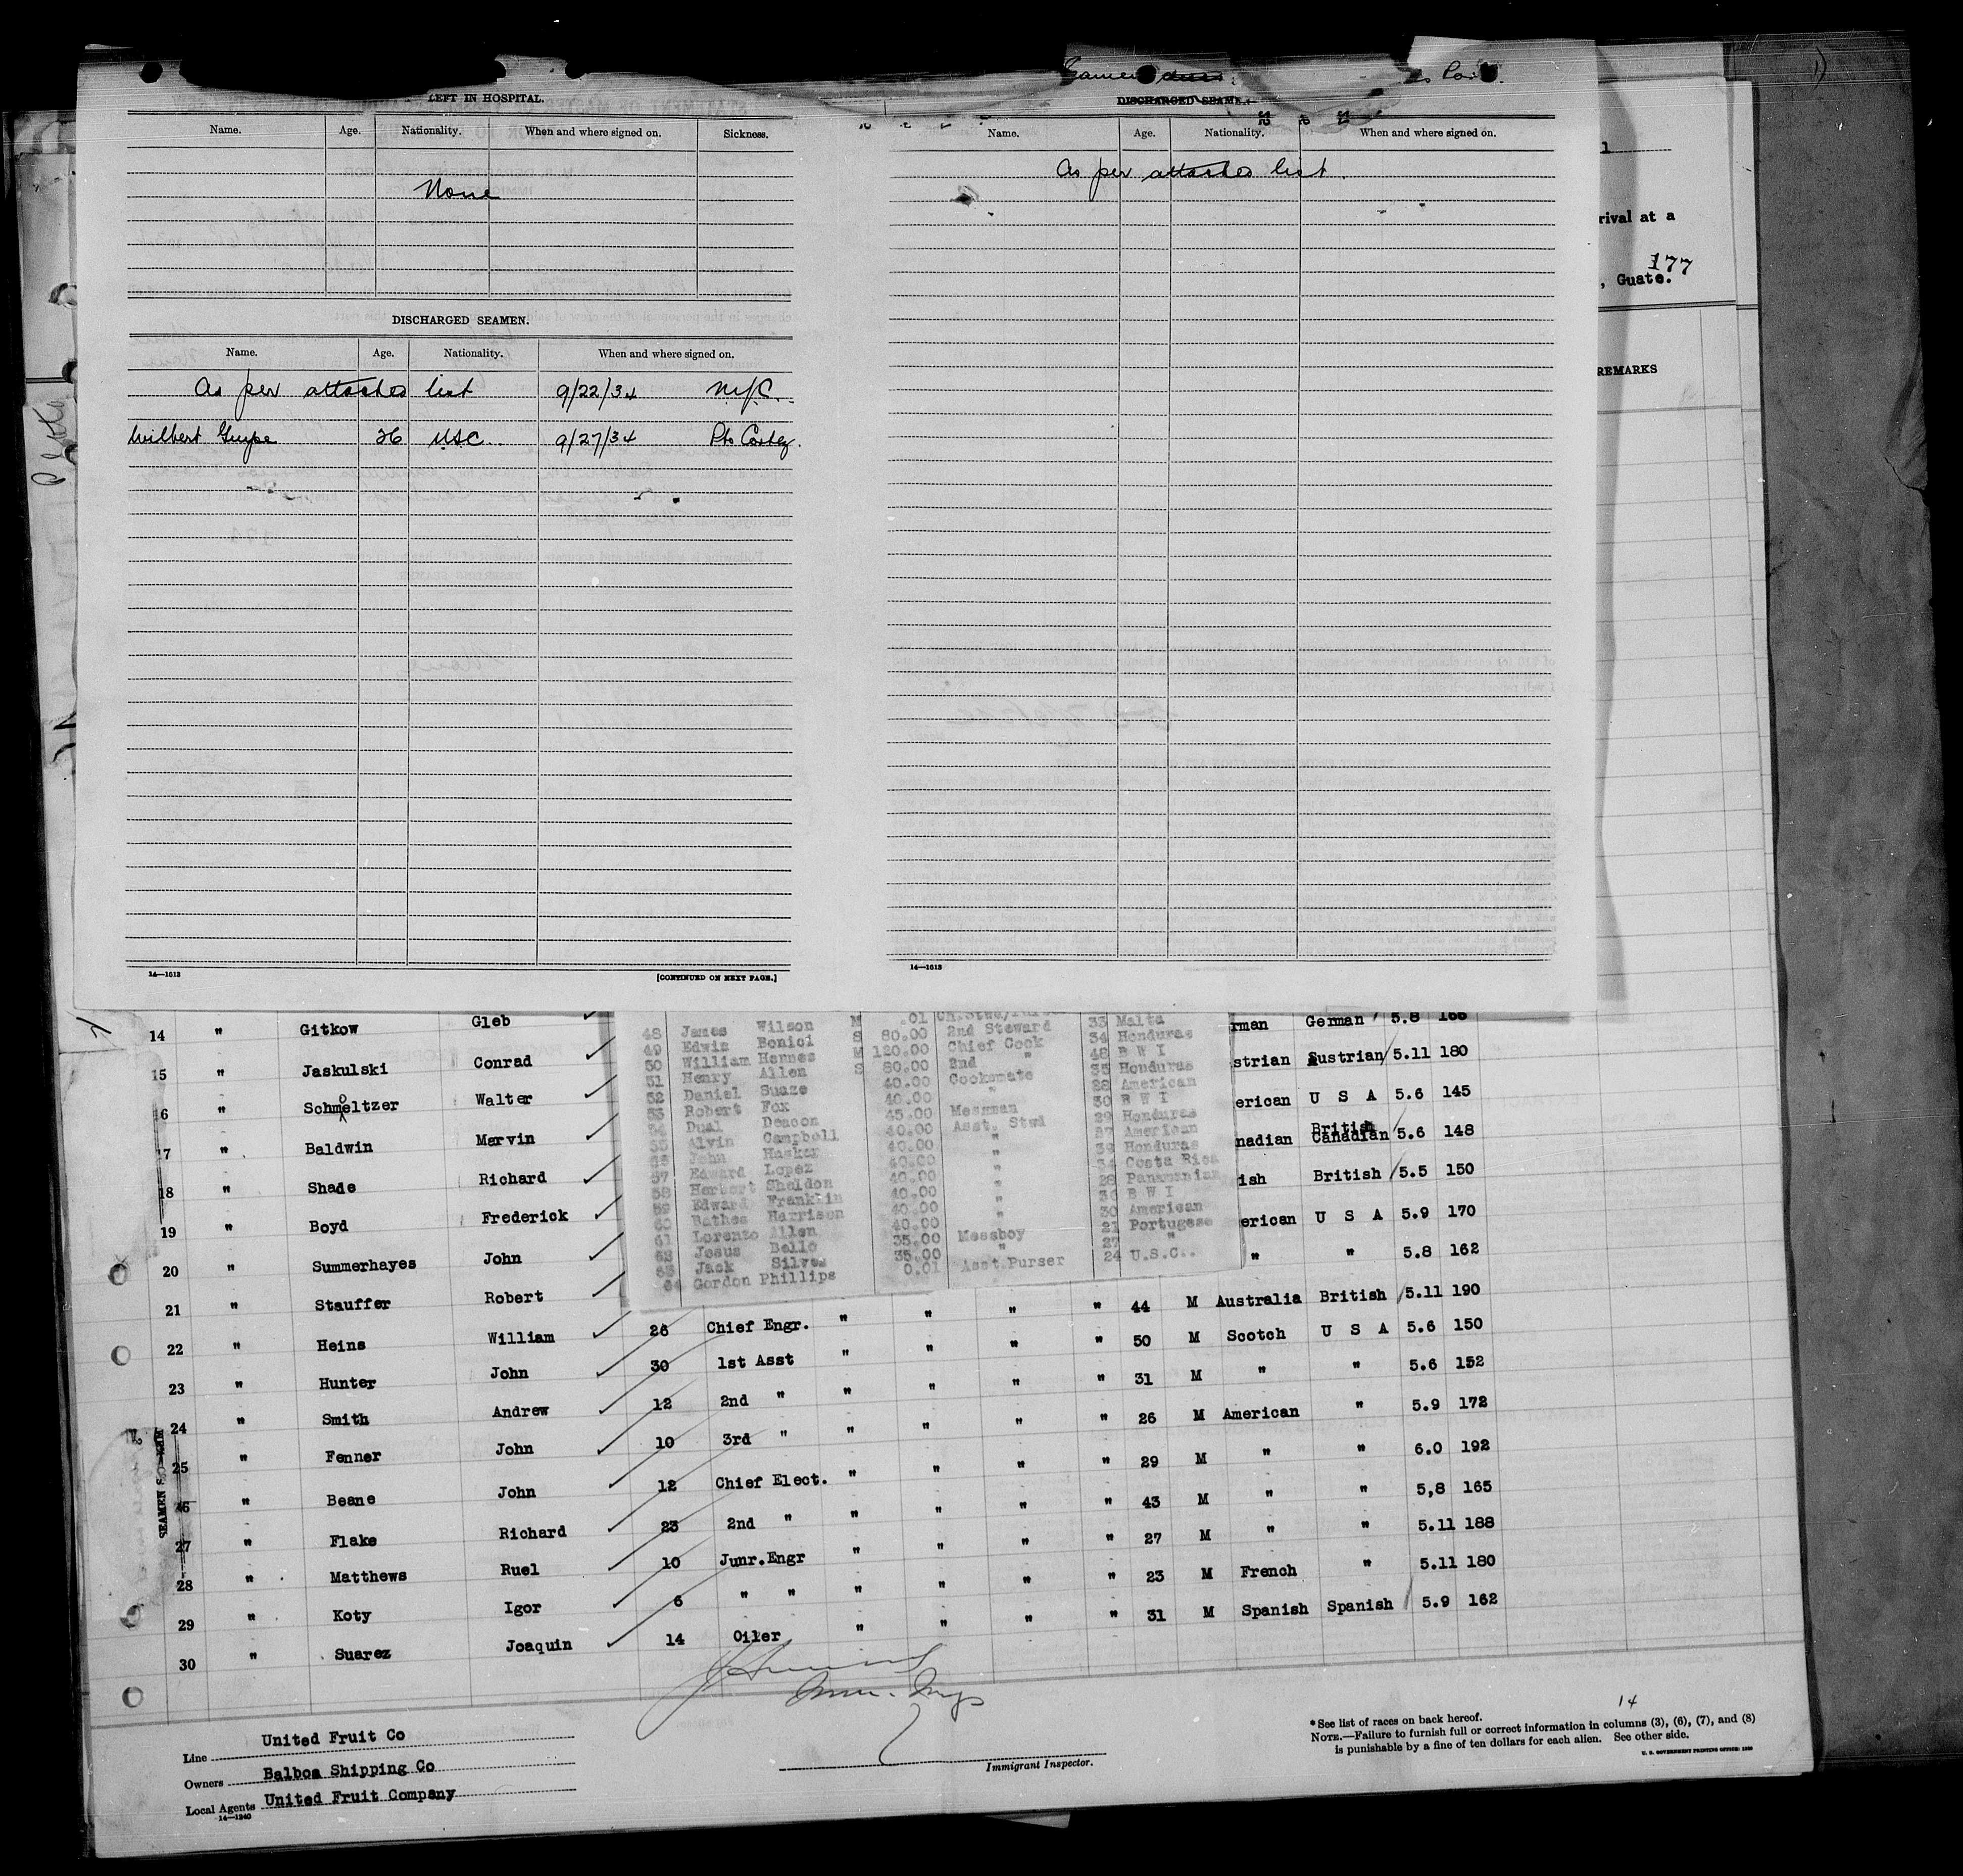 LEFT IN HOSPITAL.
Name. Age. Nationality. When and where signed on. Sickness.
None
DISCHARGED SEAMEN.
Name. Age. Nationality. When and where signed on.
As per attached list 9/22/34 N.Y.C.
Wilbert 26 USC. 9/27/34 Pto Cortez.
14—1613
[CONTINUED ON NEXT PAGE.]
DISCHARGED SEAMEN
Name. Age. Nationality. When and where signed on.
As per attached list.
14—1613
rival at a
177
, Guate.
REMARKS
14 " Gitkow Gleb
15 " Jaskulski Conrad
16 " Schmeltzer Walter
17 " Baldwin Marvin
18 " Shade Richard
19 " Boyd Frederick
20 " Summerhayes John
21 " Stauffer Robert
48 James Wilson M .01
49 Edwin Bonici S 80.00 2nd Steward 33 Malta
50 William Hennes M 120.00 Chief Cook 34 Honduras
51 Henry Allen S 80.00 2nd " 48 B W I
52 Daniel Suaze 40.00 Cooksmate 35 Honduras
53 Robert Fox 40.00 " 28 American
54 Dual Deacon 45.00 Messman 30 B W I
55 Alvin Campbell 40.00 Asst. Stwd 29 Honduras
56 John Hasker 40.00 " 27 American
57 Edward Lopez 40.00 " 39 Honduras
58 Herbert Sheldon 40.00 " 34 Costa Rica
59 Edward Franklin 40.00 " 28 Panamanian
60 Bathes Harrison 40.00 " B W I
61 Lorenzo Allen 40.00 " 30 American
Jesus Bello 35.00 Messboy 21 Portugese
Jack Silves 35.00 " 27 "
64 Gordon Phillips 0.01 Asst.Purser 24 U.S.C..
rman German 5.8 166
strian Austrian 5.11 180
erican U S A 5.6 145
nadian British Canadian 5.6 148
ish British 5.5 150
erican U S A 5.9 170
" " 5.8 162
22 " Heins William 26 Chief Engr. " " " " 44 M Australia British 5.11 190
23 " Hunter John 30 1st Asst " " " " 50 M Scotch U S A 5.6 150
24 " Smith Andrew 12 2nd " " " " " 31 M " " 5.6 152
25 " Fenner John 10 3rd " " " " " 26 M American " 5.9 172
26 " Beane John 12 Chief Elect. " " " " 29 M " " 6.0 192
27 " Flake Richard 23 2nd " " " " " 43 M " " 5,8 165
28 " Matthews Ruel 10 Junr.Engr " " " " 27 M " " 5.11 188
29 " Koty Igor 6 " " " " " " 23 M French " 5.11 180
30 " Suarez Joaquin 14 Oiler " " " " 31 M Spanish Spanish 5.9 162
Line United Fruit Co
Owners Balboa Shipping Co
Local Agents United Fruit Company
14—1240
Imm. Insp
Immigrant Inspector.
14
* See list of races on back hereof.
NOTE.—Failure to furnish full or correct information in columns (3), (6), (7), and (8)
is punishable by a fine of ten dollars for each alien. See other side.
U. S. GOVERNMENT PRINTING OFFICE: